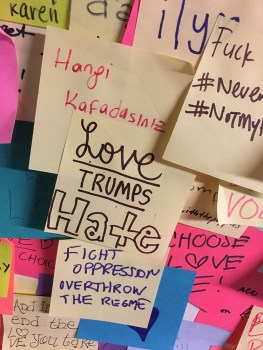 karen
a
ily
Fuck
#Never
#NotMyP
Hangi
Kafadasınız
Love
TRUMPS
Hate
FIGHT
OPPRESSION
OVERTHROW
THE REGME
CHOOSE
LOVE
CHOIC
And in
end the
LOVE you take